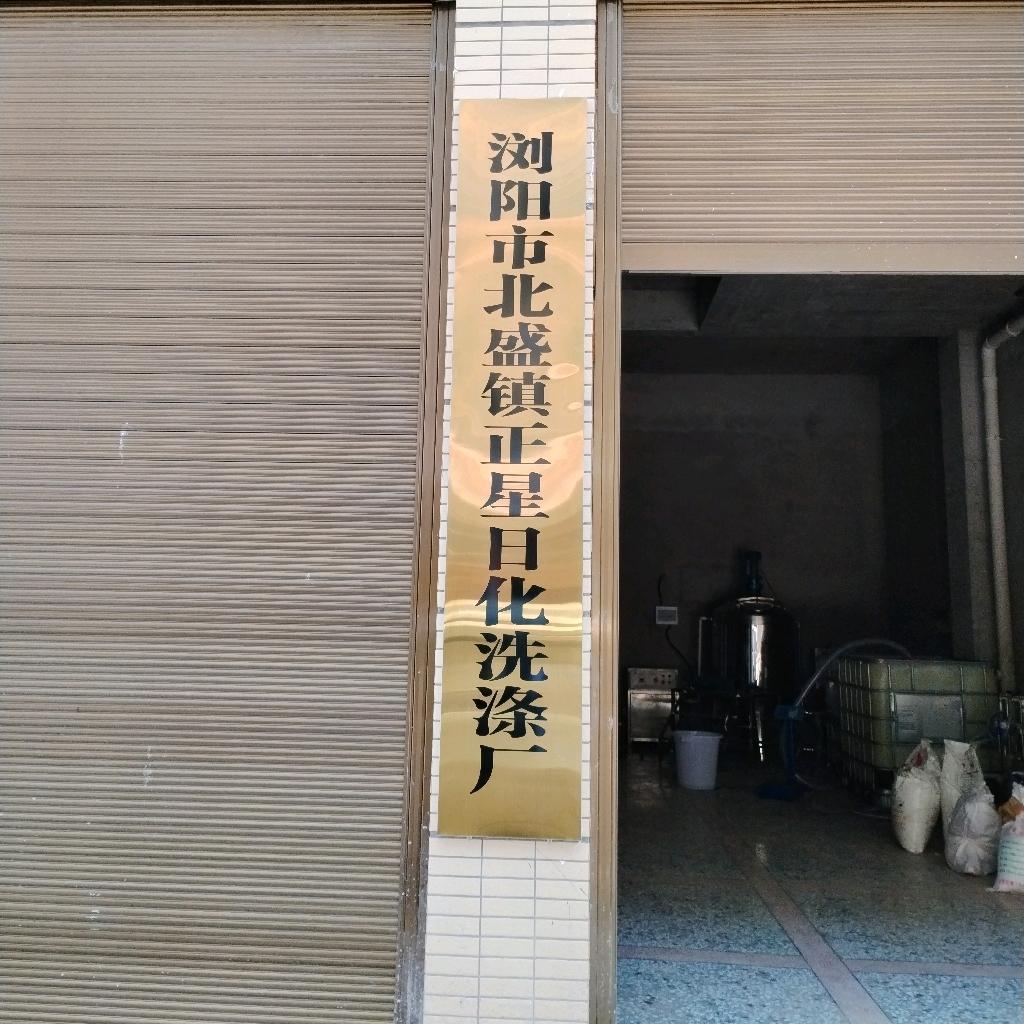 浏阳市北盛镇正星日化洗涤厂